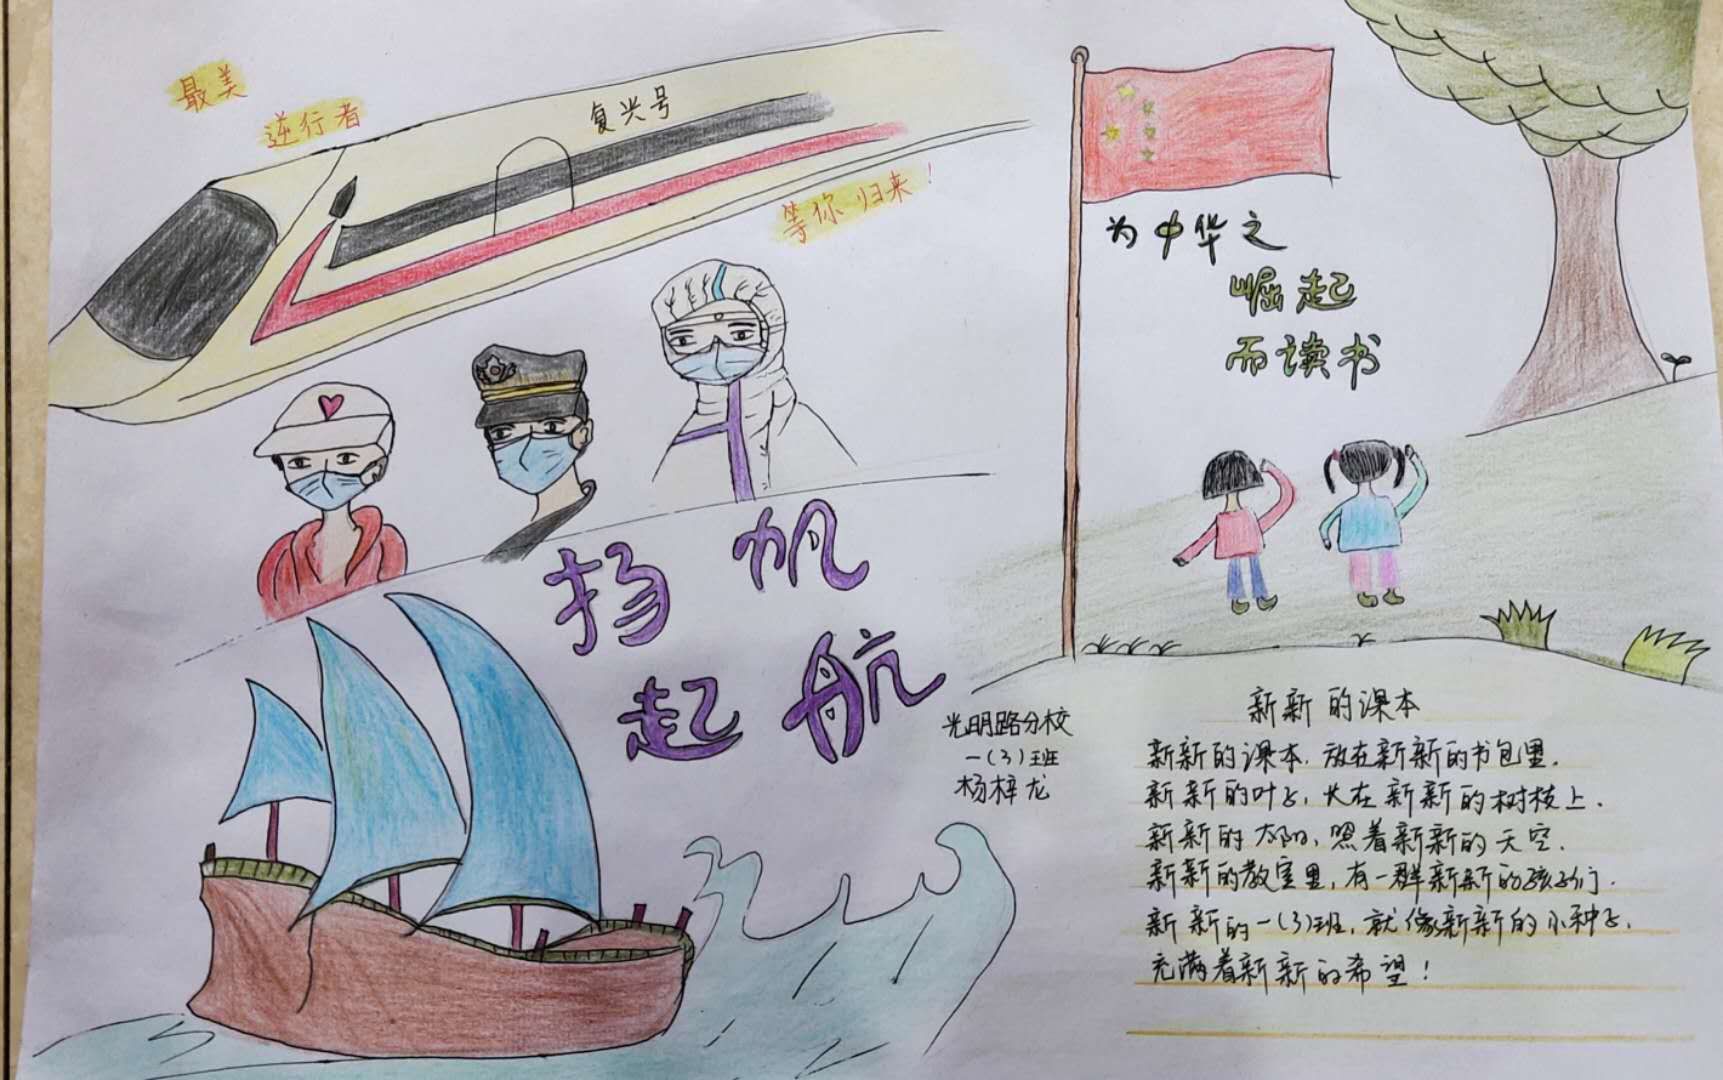 最美
逆行者
复兴号
等你归来！
为中华之
崛起
而读书
扬帆
起航
光明路分校
一(3)班
杨梓龙
新新的课本
新新的课本，放在新新的书包里.
新新的叶子，长在新新的树枝上.
新新的太阳，照着新新的天空.
新新的教室里，有一群新新的孩子们.
新新的一(3)班，就像新新的小种子，
充满着新新的希望！